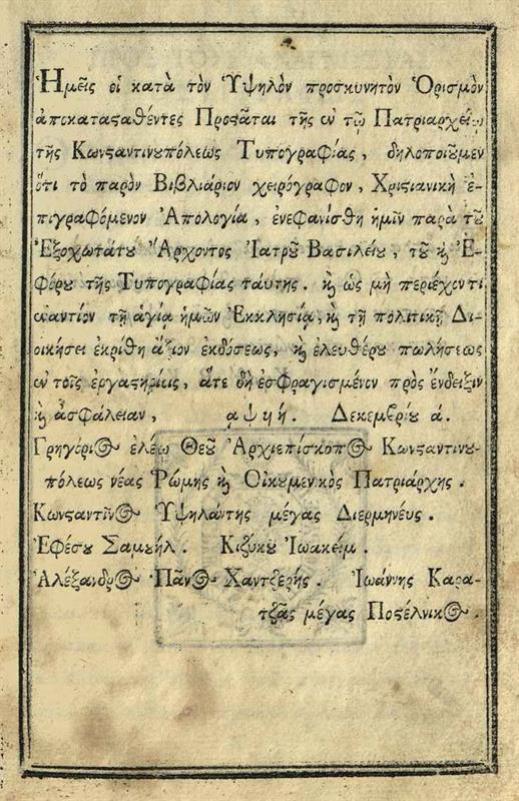 Ἡμεῖς οἱ κατὰ τὸν Ὑψηλὸν προσκυνητὸν Ὁρισμὸν
ἀποκαταϛαθέντες Προϛᾶται τῆς ἐν τῷ Πατριαρχείῳ
τῆς Κωνϛαντινȣπόλεως Τυπογραφίας, δηλοποιȣ͂μεν
ὅτι τὸ παρὸν Βιβλιάριον χειρόγραφον, Χριϛιανικὴ ἐ-
πιγραφόμενον Ἀπολογία, ἐνεφανίσθη ἡμῖν παρὰ τȣ͂
Ἐξοχωτάτȣ Ἄρχοντος Ἰατρȣ͂ Βασιλείȣ, τȣ͂ ϗ Ἐ-
φόρȣ τῆς Τυπογραφίας ταύτης. ϗ ὡς μὴ περιέχον τι
ἐναντίον τῇ ἁγίᾳ ἡμῶν Ἐκκλησίᾳ, ϗ τῇ πολιτικῇ Δι-
οικήσει ἐκρίθη ἄξιον ἐκδόσεως, ϗ ἐλευθέρȣ πωλήσεως
ἐν τοῖς ἐργαϛηρίοις, ἅτε δὴ ἐσφραγισμένον πρὸς ἔνδειξιν
ϗ ἀσφάλειαν, αψϟή. Δεκεμβρίȣ ά.
Γρηγόριος ἐλέῳ Θεȣ͂ Ἀρχιεπίσκοπος Κωνϛαντινȣ-
πόλεως νέας Ῥώμης ϗ Οἰκȣμενικὸς Πατριάρχης.
Κωνϛαντῖνος Ὑψηλάντης μέγας Διερμηνεύς.
Ἐφέσȣ Σαμȣήλ. Κιζύκȣ Ἰωακείμ.
Ἀλέξανδρος Πᾶνος Χαντζερής. Ἰωάννης Καρα-
τζᾶς μέγας Ποϛέλνικος.